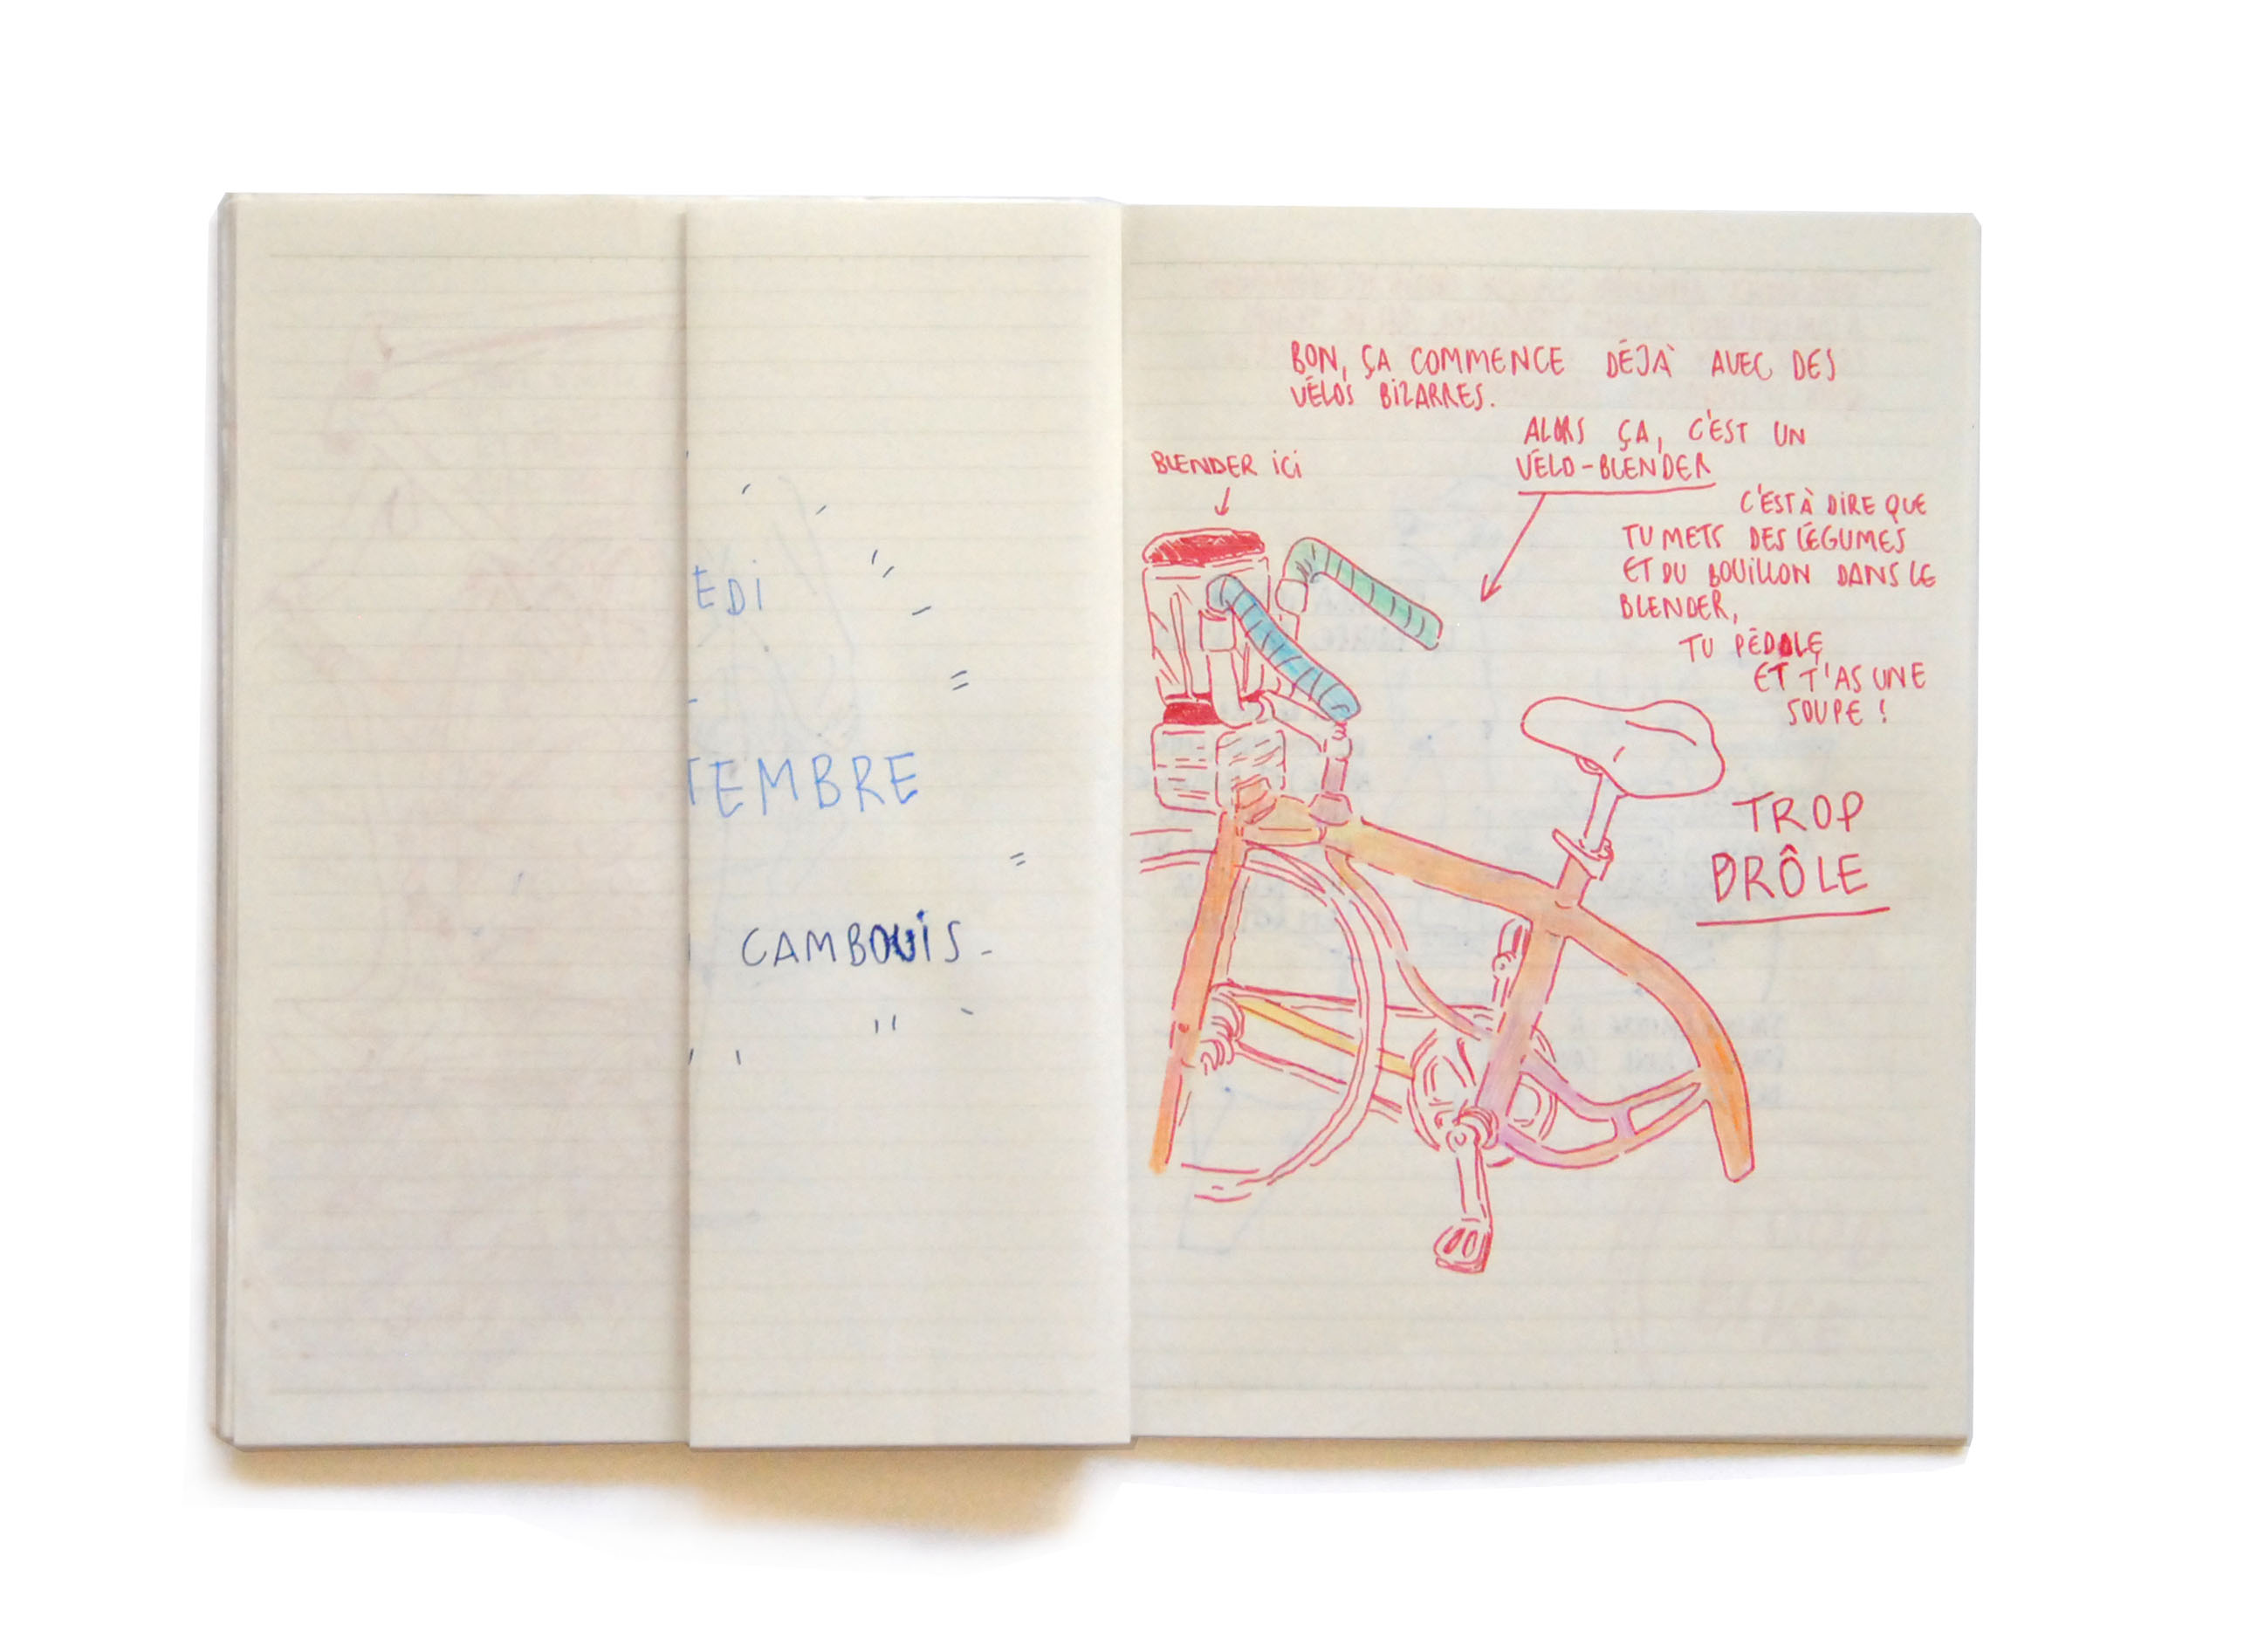 EDI
TEMBRE
CAMBOUIS
BON, ÇA COMMENCE DÉJÀ AVEC DES
VÉLOS BIZARRES.
ALORS ÇA, C'EST UN
VÉLO-BLENDER
BLENDER ICI
C'EST À DIRE QUE
TU METS DES LÉGUMES
ET DU BOUILLON DANS LE
BLENDER,
TU PÉDALE
ET T'AS UNE
SOUPE !
TROP
DRÔLE